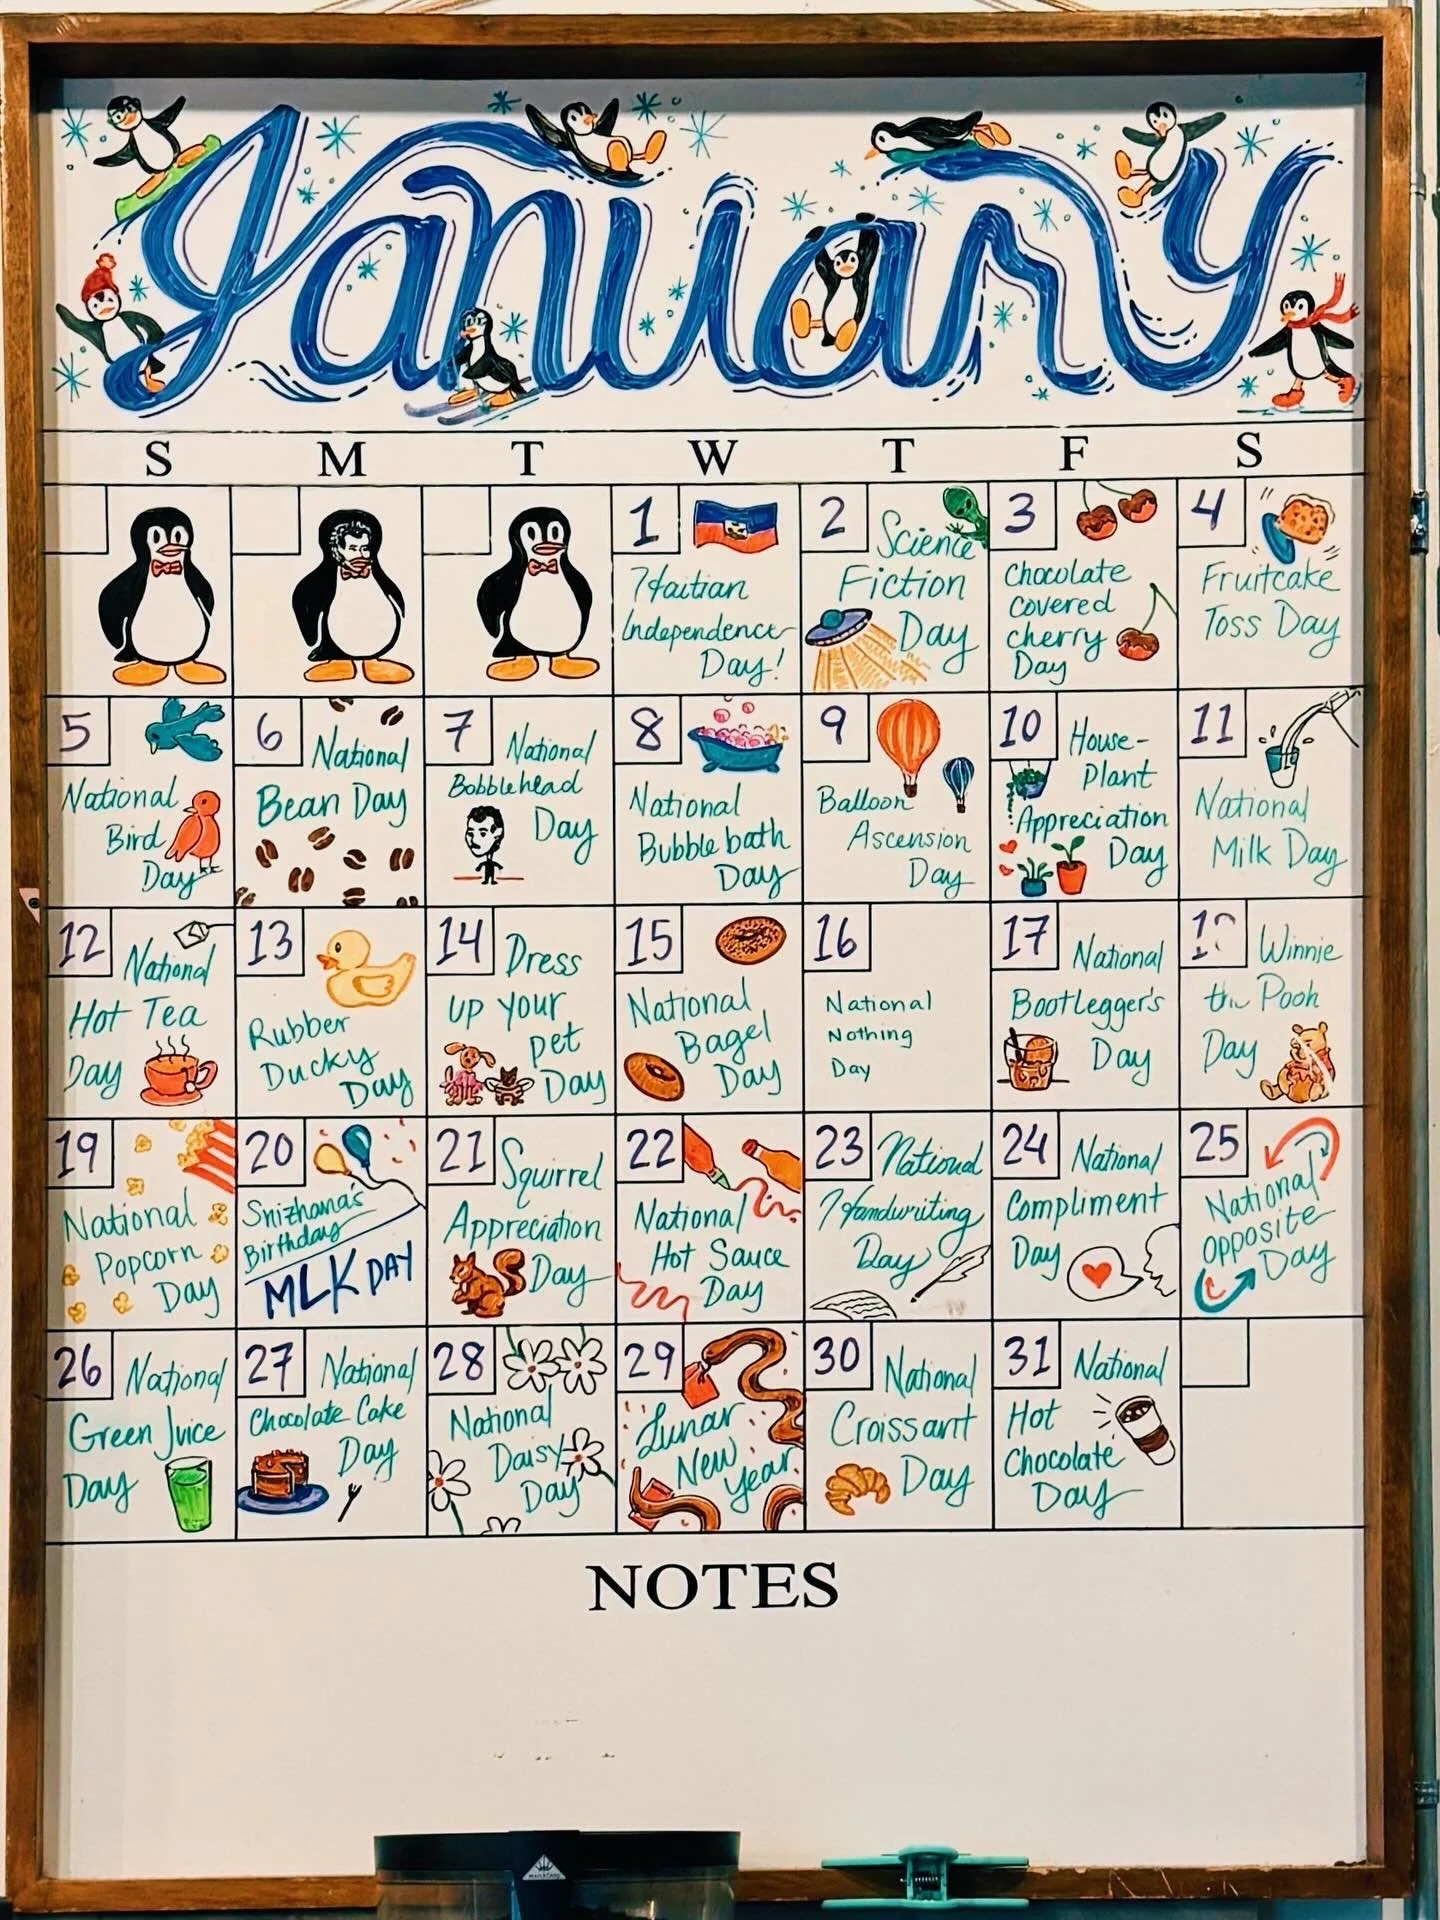 January
S M T W T F S
1
Haitian
Independence
Day!
2
Science
Fiction
Day
3
Chocolate
covered
cherry
Day
4
Fruitcake
Toss Day
5
National
Bird
Day
6
National
Bean Day
7
National
Bobblehead
Day
8
National
Bubble bath
Day
9
Balloon
Ascension
Day
10
House-
Plant
Appreciation
Day
11
National
Milk Day
12
National
Hot Tea
Day
13
Rubber
Ducky
Day
14
Dress
up your
pet
Day
15
National
Bagel
Day
16
National
Nothing
Day
17
National
Bootlegger's
Day
Winnie
the Pooh
Day
19
National
Popcorn
Day
20
Snizhana's
Birthday
MLK DAY
21
Squirrel
Appreciation
Day
22
National
Hot Sauce
Day
23
National
Handwriting
Day
24
National
Compliment
Day
25
National
opposite
Day
26
National
Green Juice
Day
27
National
Chocolate Cake
Day
28
National
Daisy
Day
29
Lunar
New
year
30
National
Croissant
Day
31
National
Hot
Chocolate
Day
NOTES